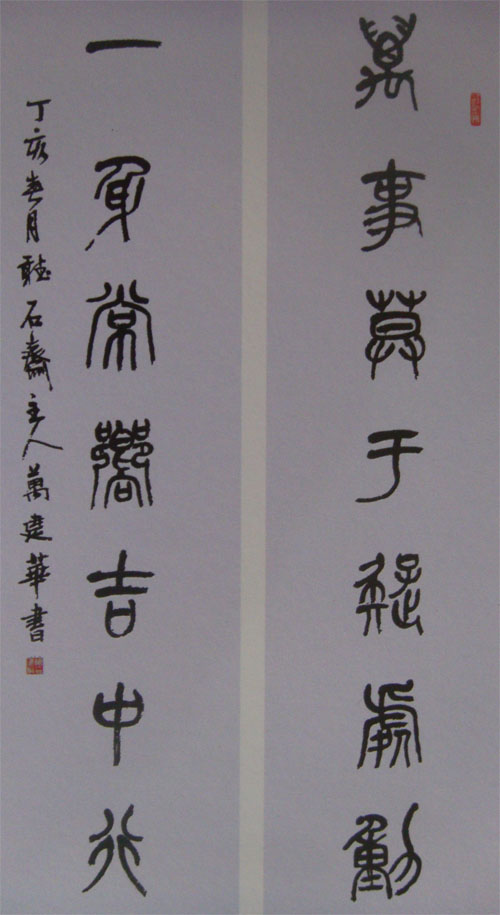 萬事莫于疑處動
一身常嚮吉中行
丁亥春月聽石齋主人萬建華書